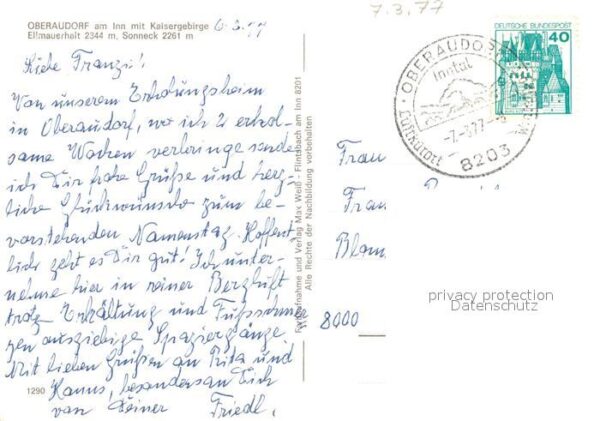 OBERAUDORF am Inn mit Kaisergebirge
Ellmauerhalt 2344 m, Sonneck 2261 m
6.3.77
7.3.77
Liebe Franzi!
Von unserem Erholungsheim
in Oberaudorf, wo ich 2 erhol-
same Wochen verbringe sende
ich Dir frohe Grüße und herz-
liche Glückwünsche zum be-
vorstehenden Namenstag. Hoffent-
lich geht es Dir gut! Ich unter-
nehme hier in reiner Bergluft
trotz Erkältung und Fußschmer
zen ausgiebige Spaziergänge.
Mit lieben Grüßen an Rita und
Hanns, besonders an Dich
von Deiner Friedl.
1290
Farbaufnahme und Verlag Max Weiß - Flintsbach am Inn 8201
Alle Rechte der Nachbildung vorbehalten
DEUTSCHE BUNDESPOST
40
OBERAUDORF
Inntal
-7.-3.77-
Luftkurort
8203
Frau
Fran
Blum
8000
privacy protection
Datenschutz